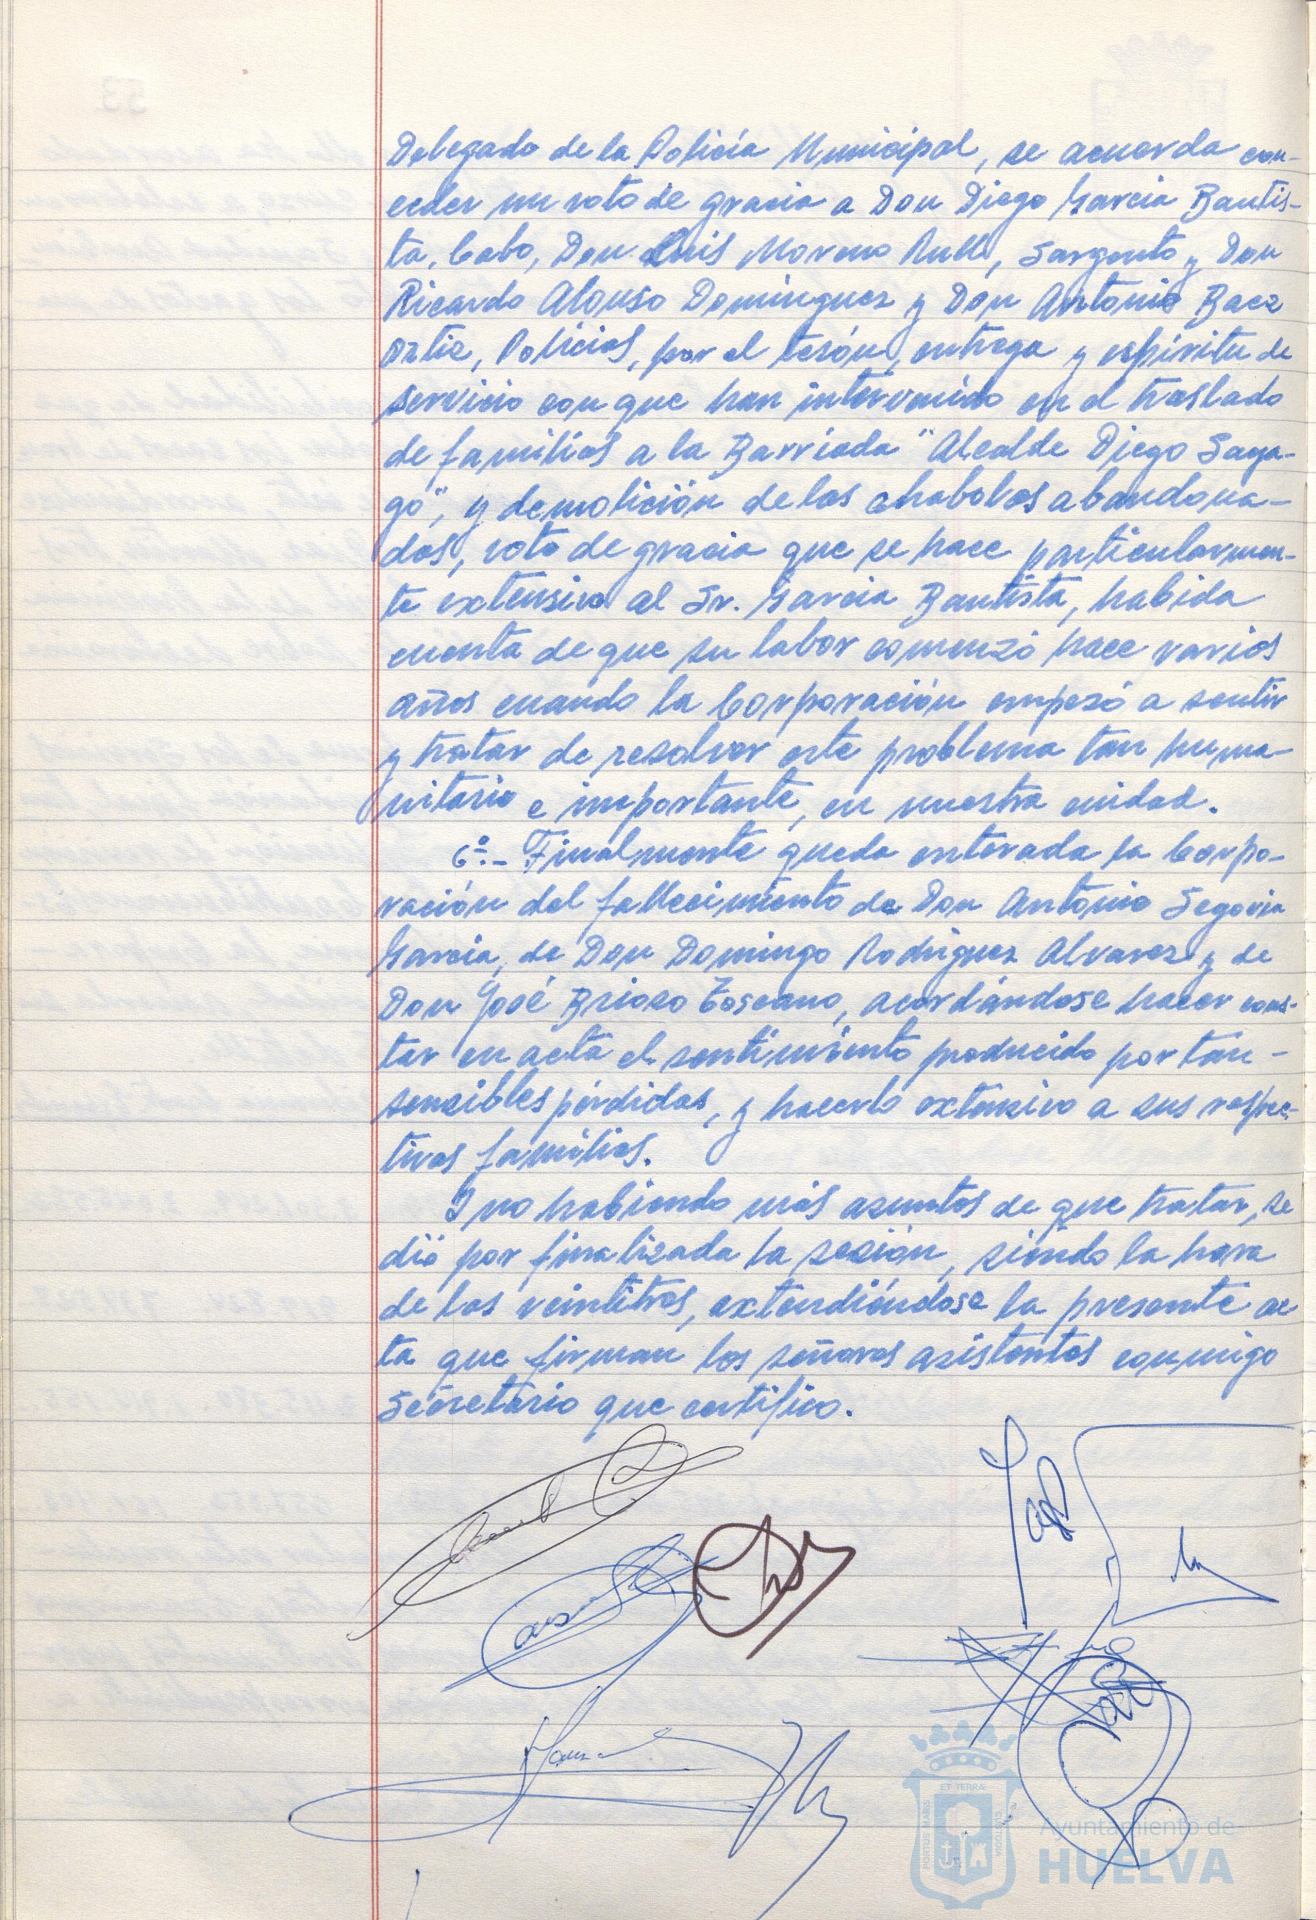 Delegado de la Policía Municipal, se acuerda con-
ceder un voto de gracia a Don Diego Garcia Bautis-
ta, Cabo, Don Luis Moreno Rull, Sargento y Don
Ricardo Alonso Dominguez y Don Antonio Baez
Ortiz, Policias, por el tesón, entrega y espíritu de
servicio con que han intervenido en el traslado
de familias a la Barriada "Alcalde Diego Saya-
go", y demolición de las chabolas abandona-
das, voto de gracia que se hace particularmen-
te extensivo al Sr. Garcia Bautista, habida
cuenta de que su labor comenzó hace varios
años cuando la Corporación empezó a sentir
y tratar de resolver este problema tan huma-
nitario e importante, en nuestra ciudad.
6º.- Finalmente queda enterada la Corpo-
ración del fallecimiento de Don Antonio Segovia
Garcia, de Don Domingo Rodriguez Alvarez y de
Don José Brioso Toscano, acordándose hacer cons-
tar en acta el sentimiento producido por tan -
sensibles pérdidas, y hacerlo extensivo a sus respec-
tivas familias.
Y no habiendo más asuntos de que tratar, se
dió por finalizada la sesión, siendo la hora
de las veintitres, extendiéndose la presente ac
ta que firman los señores asistentes conmigo
Secretario que certifico.
ET TERRÆ
PORTUS MARIS
CUSTODIA
Ayuntamiento de
HUELVA